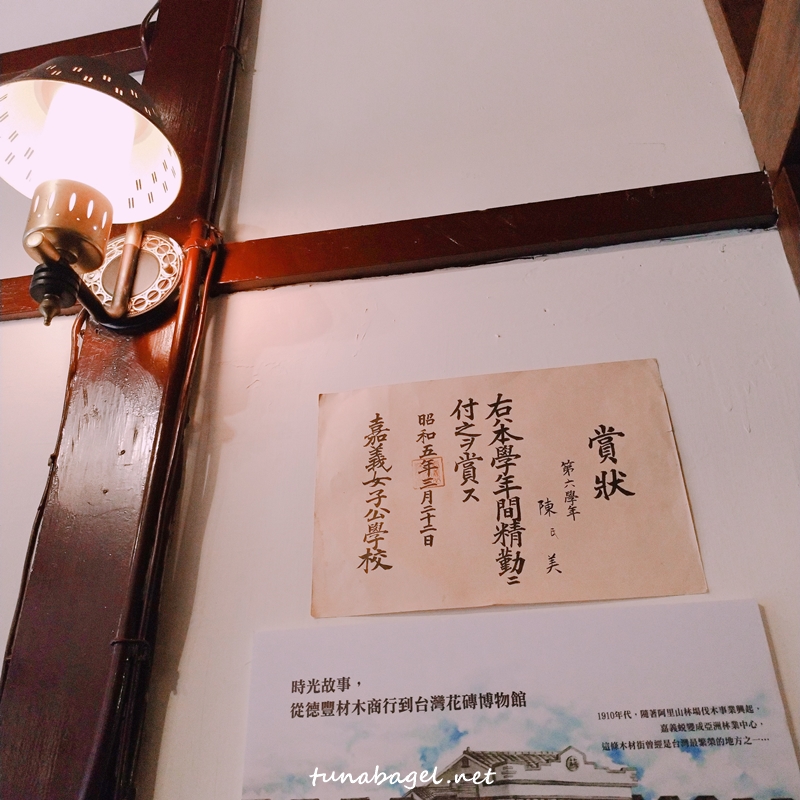 賞狀
第六學年
陳氏美
右ハ本學年間精勤ニ
付之ヲ賞ス
昭和五年三月二十二日
嘉義女子公學校
時光故事，
從德豐材木商行到台灣花磚博物館
1910年代，隨著阿里山林場伐木事業興起，
嘉義蛻變成亞洲林業中心，
這條木材街曾經是台灣最繁榮的地方之一⋯⋯
tunabagel.net